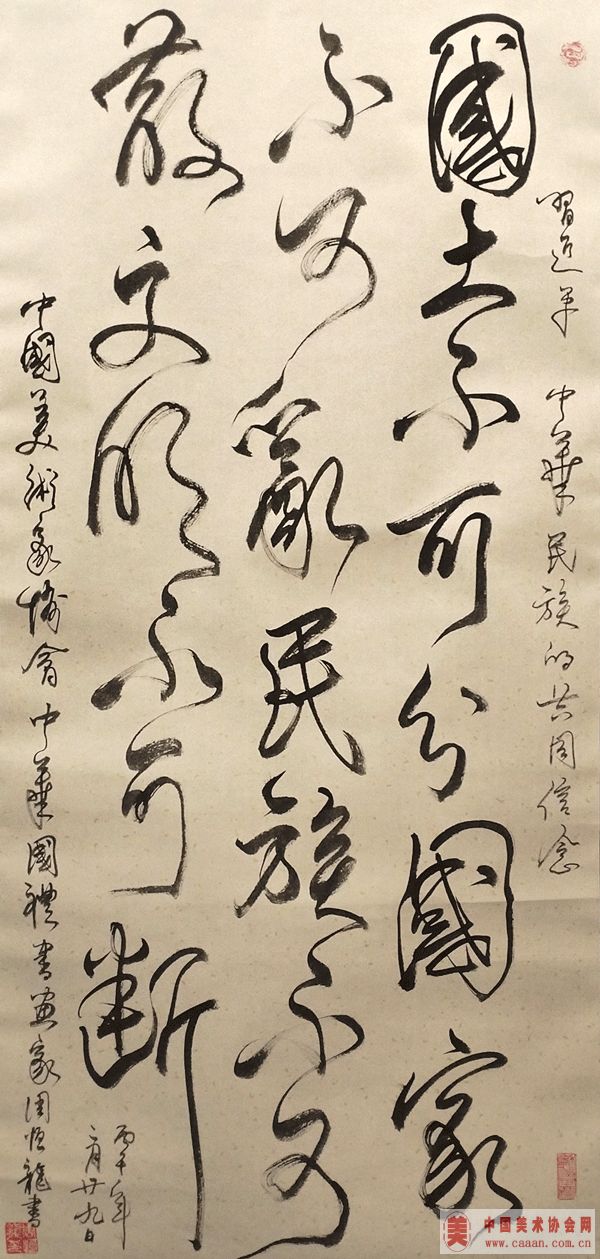 習近平 中華民族的共同信念
國土不可分國家
不可亂民族不可
散文明不可断
丙午年
月廿九日
中國美術家協會中華國禮書畫家周恒龍書
中国美术协会网
www.caaan.com.cn